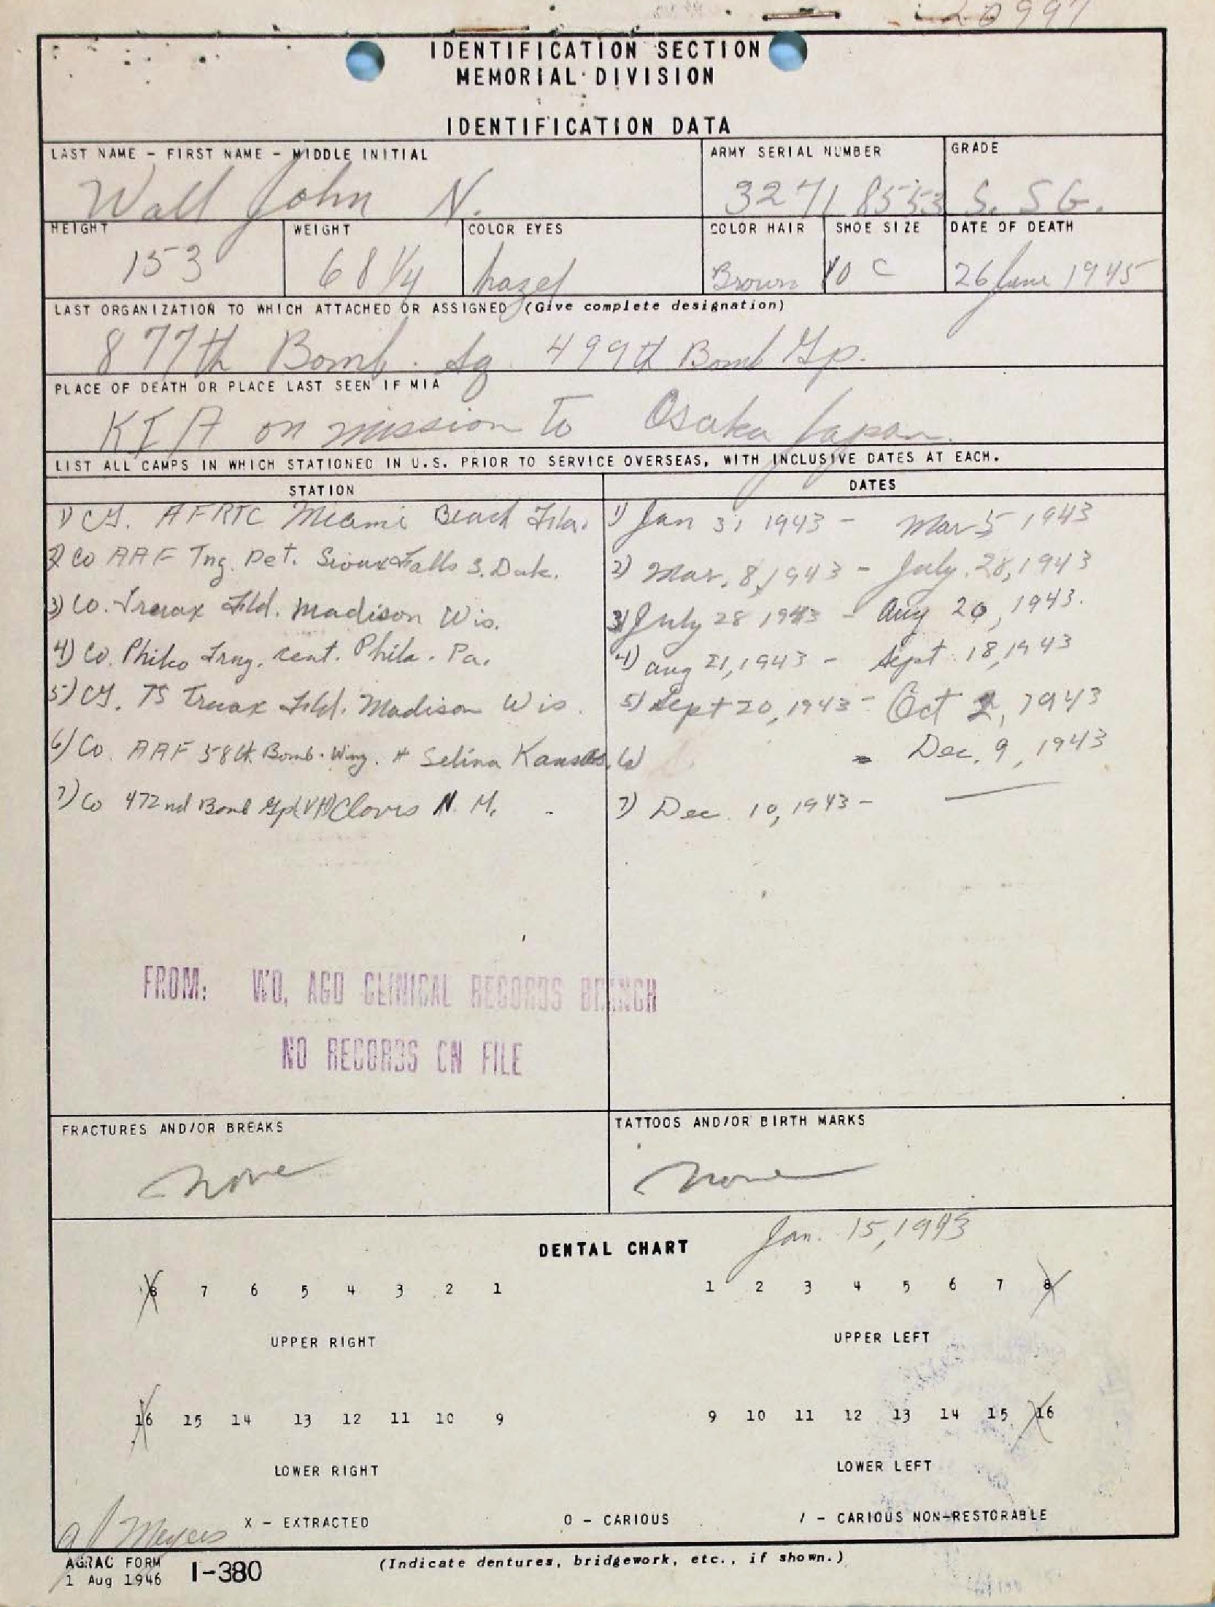 20997
IDENTIFICATION SECTION
MEMORIAL DIVISION
IDENTIFICATION DATA
LAST NAME - FIRST NAME - MIDDLE INITIAL ARMY SERIAL NUMBER GRADE
Wall John N. 32718553 S. SG.
HEIGHT WEIGHT COLOR EYES COLOR HAIR SHOE SIZE DATE OF DEATH
153 68 1/4 hazel Brown 10 C 26 June 1945
LAST ORGANIZATION TO WHICH ATTACHED OR ASSIGNED (Give complete designation)
877th Bomb. Sq. 499th Bomb Gp.
PLACE OF DEATH OR PLACE LAST SEEN IF MIA
KIA on mission to Osaka Japan.
LIST ALL CAMPS IN WHICH STATIONED IN U.S. PRIOR TO SERVICE OVERSEAS, WITH INCLUSIVE DATES AT EACH.
STATION DATES
1) CG. AFRTC Miami Beach Fla. 1) Jan 31 1943 - Mar 5 1943
2) Co AAF Tng. Det. Sioux Falls S. Dak. 2) Mar. 8, 1943 - July. 28, 1943
3) Co. Truax Fld. Madison Wis. 3) July 28 1943 - Aug 20, 1943.
4) Co. Philco Trng. Cent. Phila. Pa. 4) Aug 21, 1943 - Sept 18, 1943
5) CG. TS Truax Fld. Madison Wis. 5) Sept 20, 1943 - Oct 2, 1943
6) Co. AAF 58th Bomb. Wing. H Selina Kansas. 6) - Dec. 9, 1943
7) Co 472nd Bomb Gp (VH) Clovis N. M. - 7) Dec. 10, 1943 -
FROM: WD, AGO CLINICAL RECORDS BRANCH
NO RECORDS ON FILE
FRACTURES AND/OR BREAKS TATTOOS AND/OR BIRTH MARKS
None None
DENTAL CHART Jan. 15, 1943
8 7 6 5 4 3 2 1 1 2 3 4 5 6 7 8
UPPER RIGHT UPPER LEFT
16 15 14 13 12 11 10 9 9 10 11 12 13 14 15 16
LOWER RIGHT LOWER LEFT
Meyers X - EXTRACTED O - CARIOUS / - CARIOUS NON-RESTORABLE
AGRAC FORM
1 Aug 1946 1-380 (Indicate dentures, bridgework, etc., if shown.)